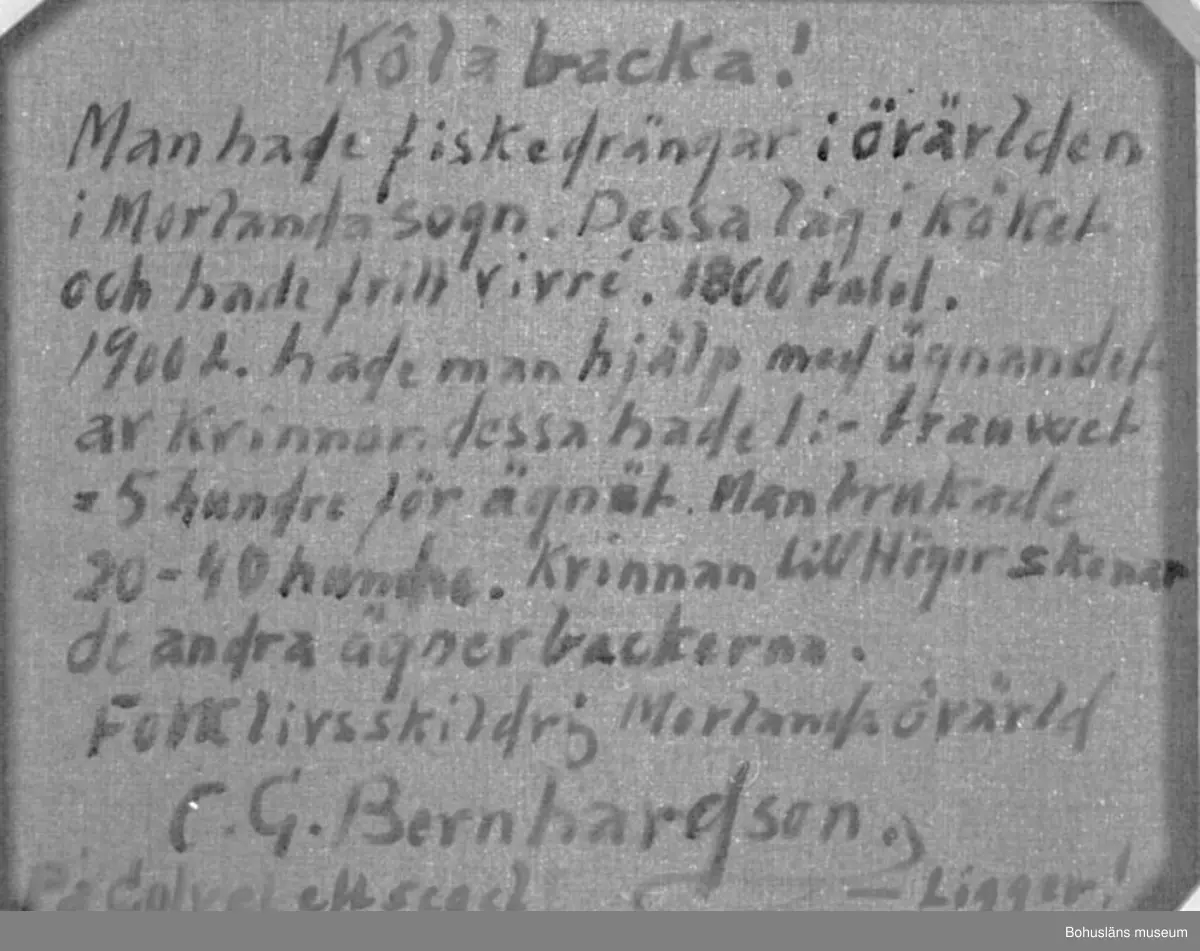 Kôlá backa!
Man hade fiskedrängar i örärlden
i Morlanda sogn. Dessa låg i köket
och hade fritt vivre. 1800 talet.
1900 t. hade man hjälp med ägnandet
av kvinnor. dessa hade 1:- trauvoet
= 5 hundre för ägnät. Man brukade
20-40 hundre. Kvinnan till Höger skenar
de andra ägner backerna.
Folklivsskildrj Morlanda örärld
C. G. Bernhardson.
På Golvet ett segel — Ligger!
Bohusläns museum